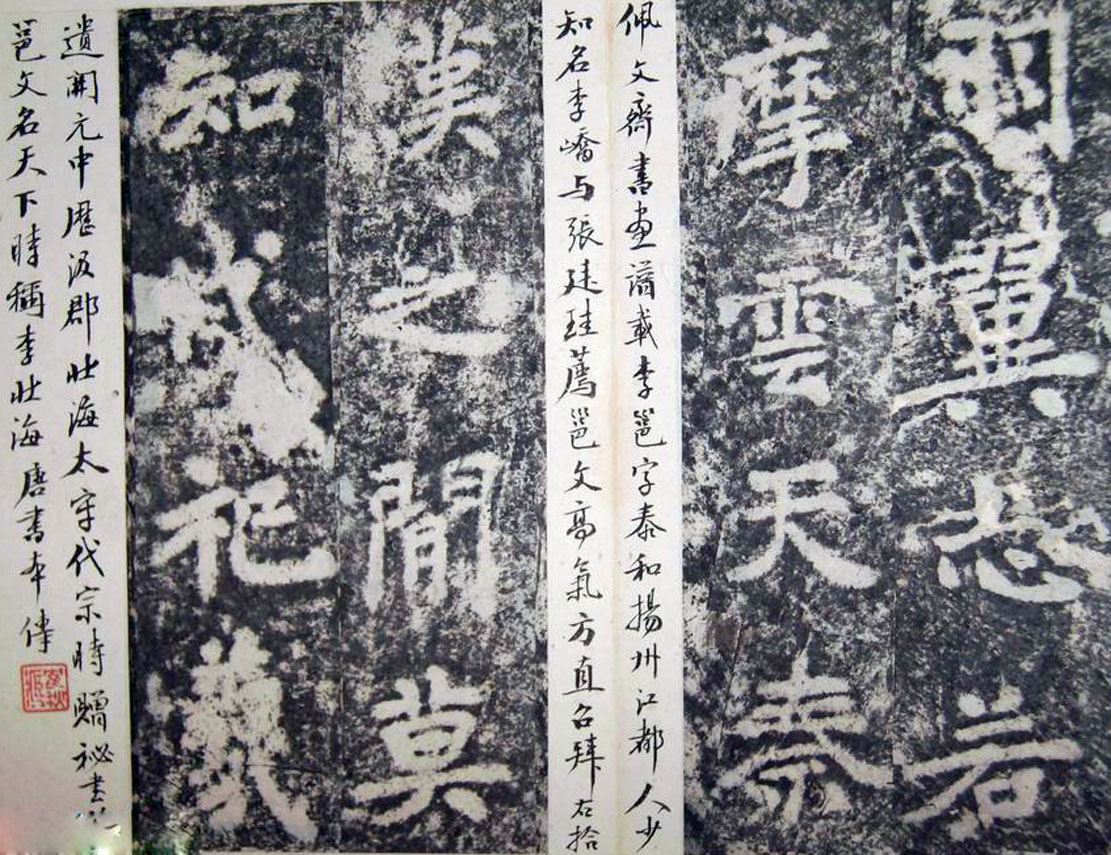 羽翼志若
摩雲天秦
佩文齋書画譜載李邕字泰和揚州江都人少
知名李嶠与張廷珪薦邕文高氣方直召拜左拾
漢之間莫
知祀羲
遺開元中歷汲郡北海太守代宗時贈祕書
邕文名天下時稱李北海唐書本傳